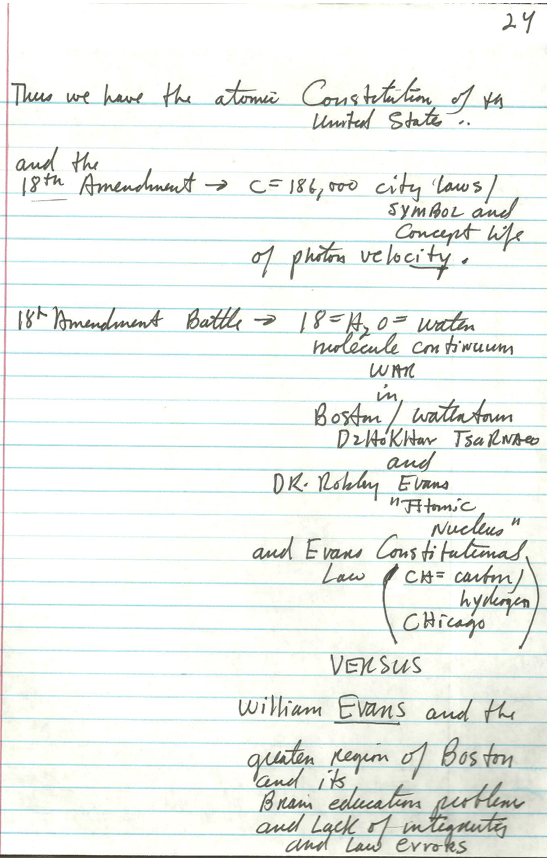 24
Thus we have the atomic Constitution of the
United States ..
and the
18th Amendment → C=186,000 city laws/
SYMBOL and
Concept life
of photon velocity.
18th Amendment Battle → 18=H2O= water
molecule continuum
WAR
in
Boston/ watertown
DzHoKHar TsaRNAeo
and
DR. Robley Evans
"Atomic
Nucleus"
and Evans Constitutional
Law (CH= carbon/
hydrogen
CHicago)
VERSUS
William Evans and the
greater region of Boston
and its
Brain education problem
and Lack of integrity
and law errors